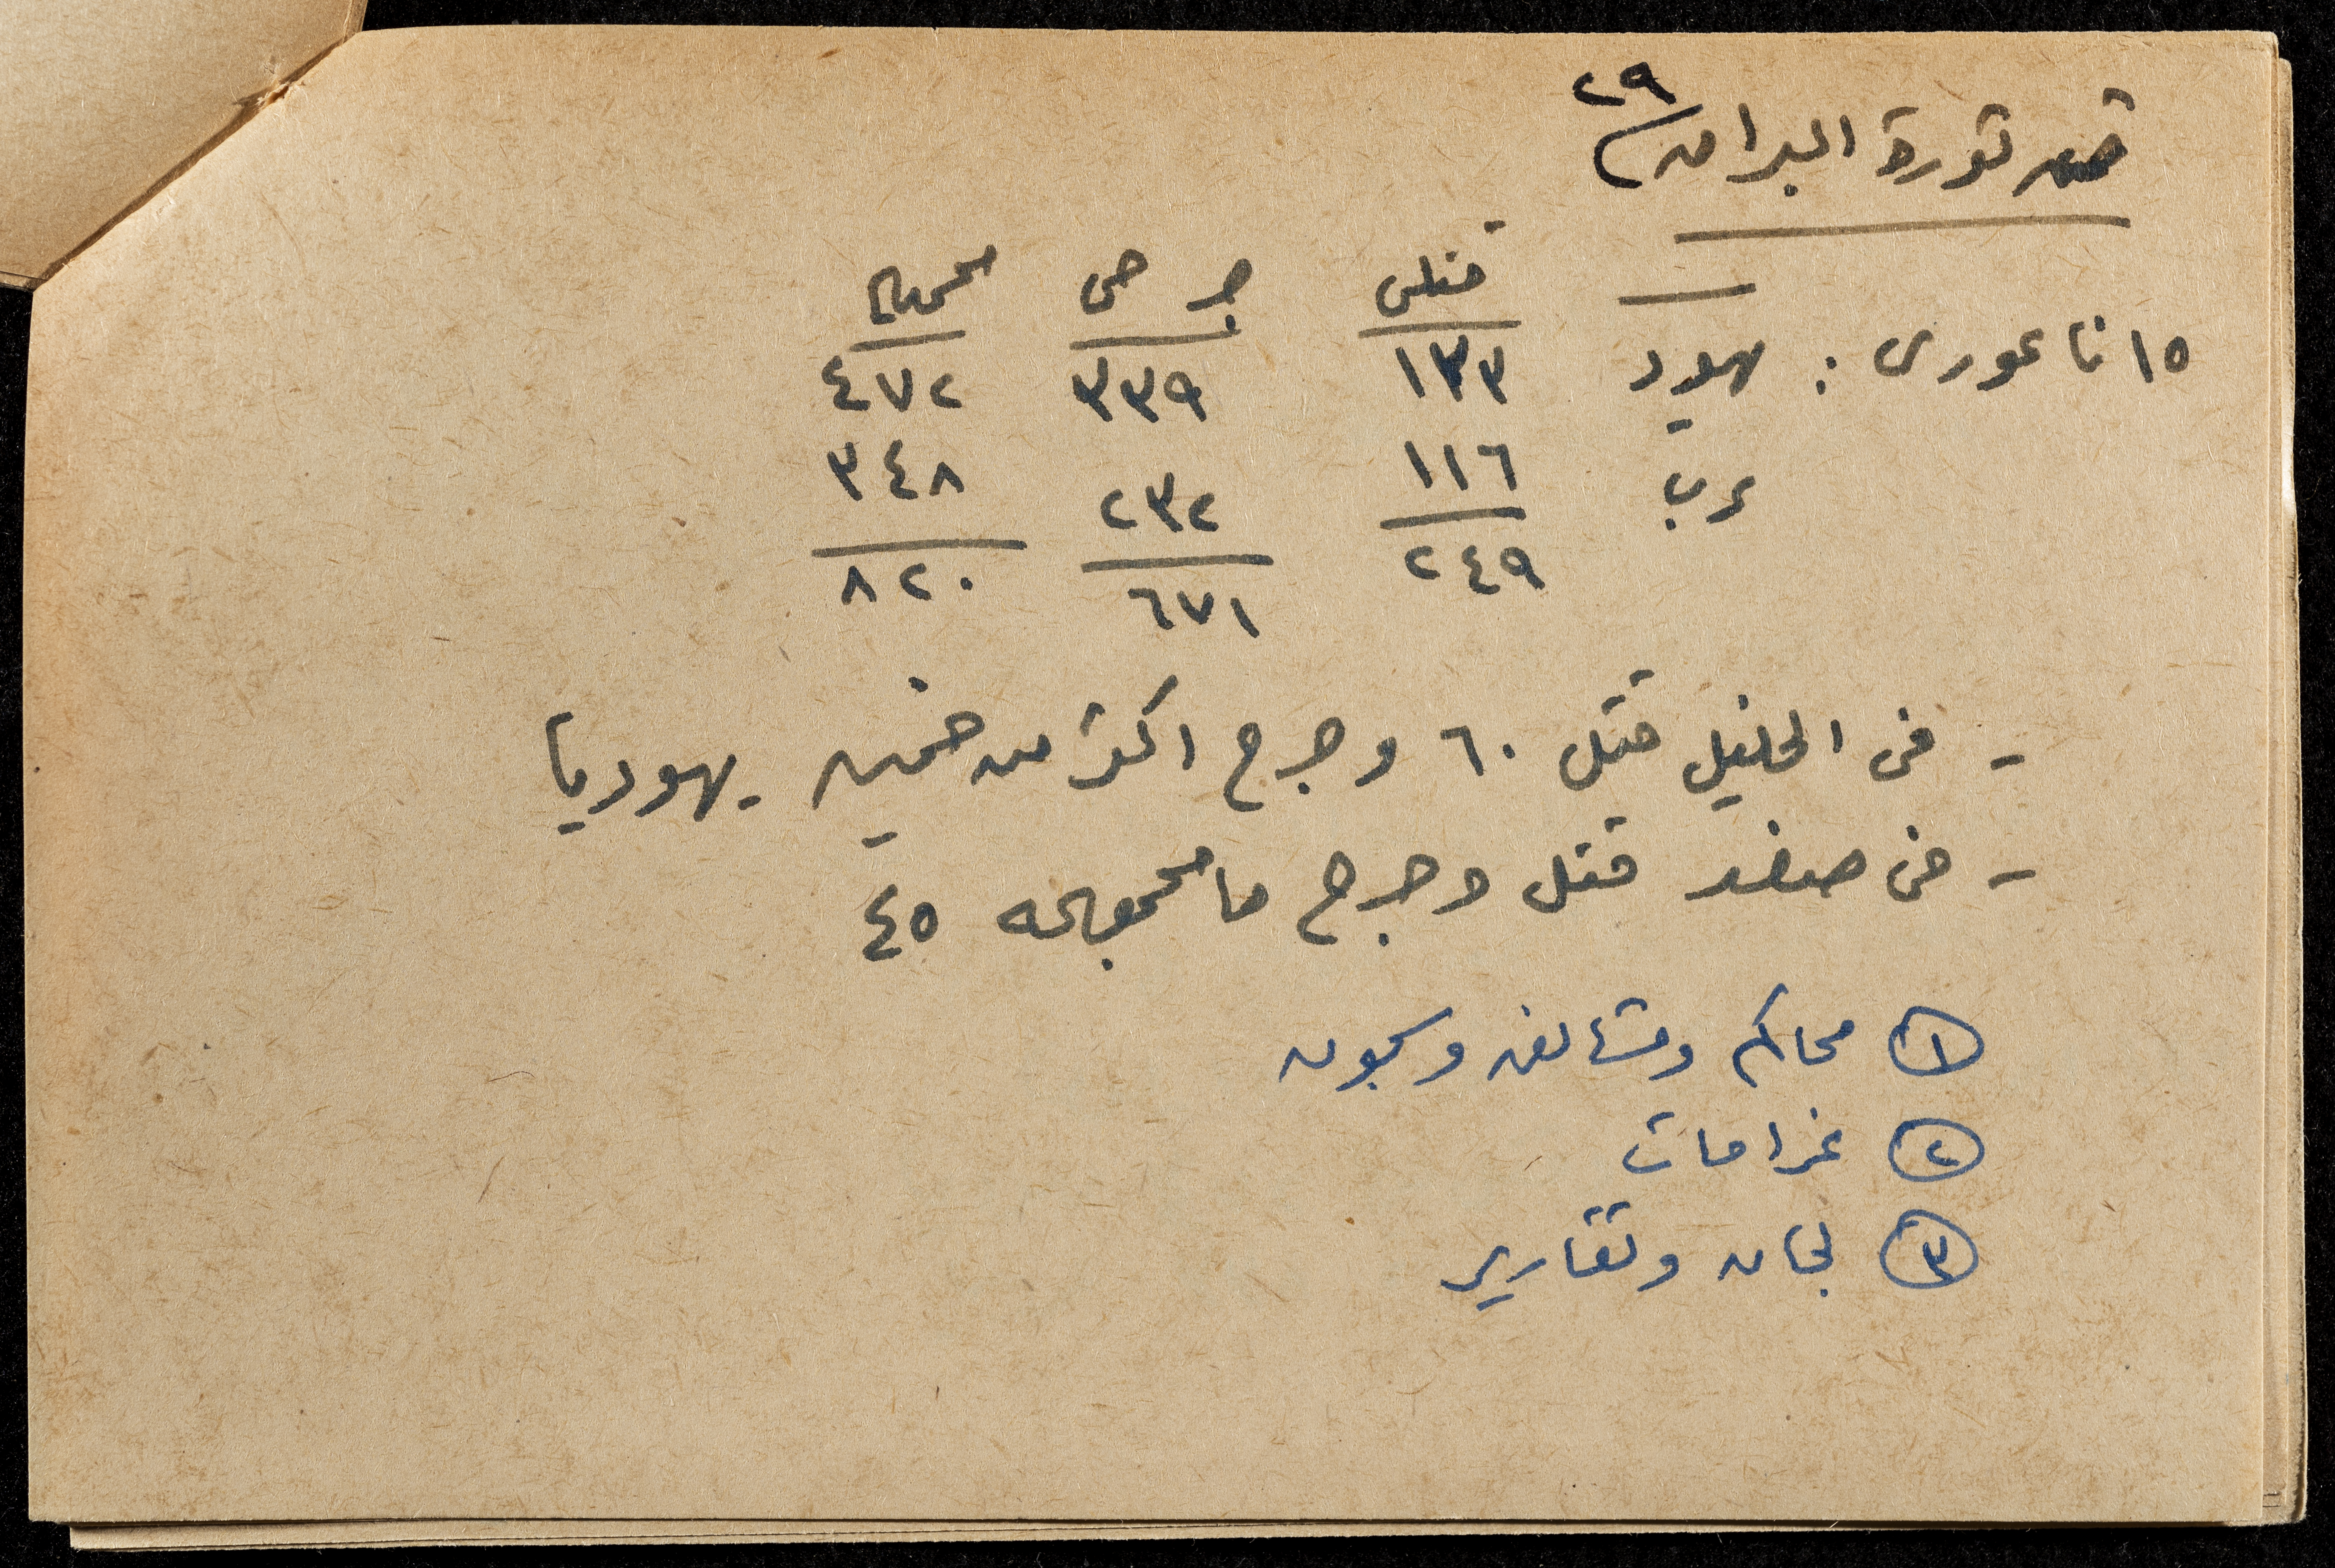 ٢٩
ثورة البراق
قتلى جرحى مجموع
١٥ نا عورى : يهود ١٣٣ ٣٣٩ ٤٧٢
عرب ١١٦ ٢٣٢ ٣٤٨
٢٤٩ ٦٧١ ٨٢٠
- فى الخليل قتل ٦٠ وجرح اكثر من خمسين يهوديا
- فى صفد قتل وجرح ما مجموعه ٤٥
١ محاكم ومشانق وسجون
٢ غرامات
٣ لجان وتقارير